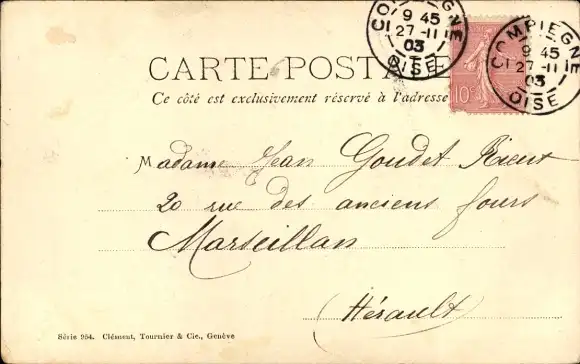 COMPIEGNE
9 45
27 -11
03
OISE
COMPIEGNE
9 45
27 -11
03
OISE
10c
CARTE POSTA
Ce côté est exclusivement réservé à l'adresse
Madame Jean Goudet
20 rue des anciens fours
Marseillan
(Hérault)
Série 254. Clément, Tournier & Cie., Genève